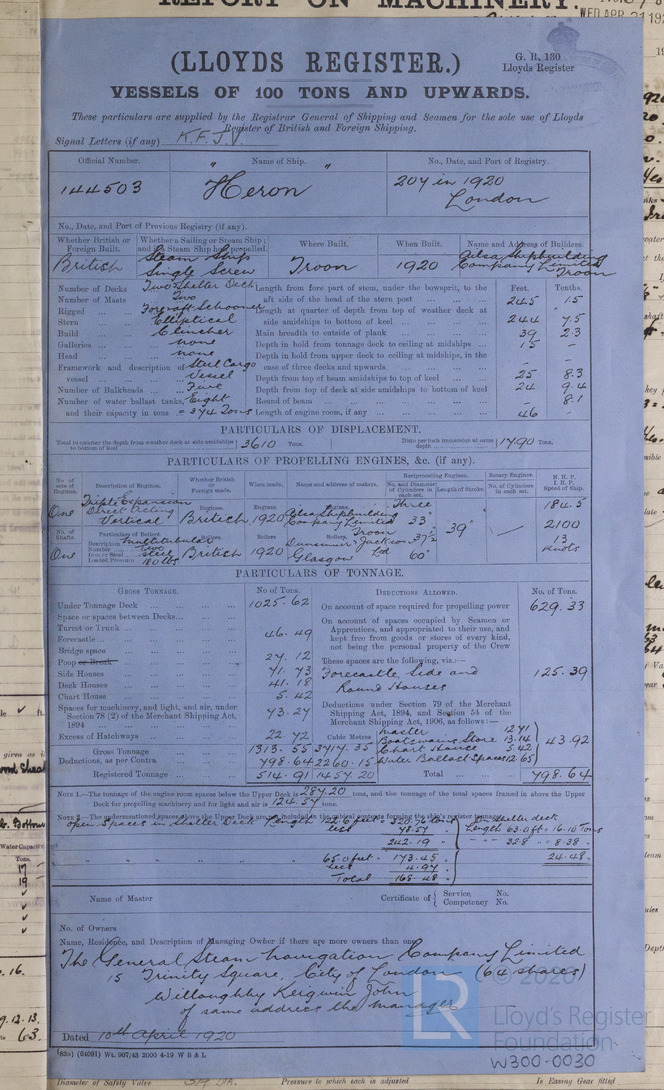 REPORT ON MACHINERY.
WED. APR 21 19
(LLOYDS REGISTER.)
G. R. 130
Lloyds Register
VESSELS OF 100 TONS AND UPWARDS.
These particulars are supplied by the Registrar General of Shipping and Seamen for the sole use of Lloyds
Register of British and Foreign Shipping.
Signal Letters (if any) K.F.J.V.
Official Number. " Name of Ship. " No., Date, and Port of Registry.
144503 Heron 207 in 1920
London
No., Date, and Port of Previous Registry (if any).
Whether British or Foreign Built. Whether a Sailing or Steam Ship; and if a Steam Ship how propelled. Where Built. When Built. Name and Address of Builders.
British Steam Ship Single Screw Troon 1920 Ailsa Shipbuilding Company Limited Troon
Number of Decks Two & Shelter Deck Length from fore part of stem, under the bowsprit, to the Feet. Tenths.
Number of Masts Two aft side of the head of the stern post 245 15
Rigged Fore & aft Schooner Length at quarter of depth from top of weather deck at
Stern Elliptical side amidships to bottom of keel 244 7.5
Build Clincher Main breadth to outside of plank 39 2.3
Galleries none Depth in hold from tonnage deck to ceiling at midships 15 –
Head none Depth in hold from upper deck to ceiling at midships, in the
Framework and description of vessel Steel Cargo Vessel case of three decks and upwards – –
Depth from top of beam amidships to top of keel 25 8.3
Number of Bulkheads Five Depth from top of deck at side amidships to bottom of keel 24 9.4
Number of water ballast tanks, Eight Round of beam – 8.1
and their capacity in tons = 374 Tons Length of engine room, if any 46 –
PARTICULARS OF DISPLACEMENT.
Total to quarter the depth from weather deck at side amidships to bottom of keel 3610 Tons. Ditto per inch immersion at same depth 1790 Tons.
PARTICULARS OF PROPELLING ENGINES, &c. (if any).
No. of sets of Engines. Description of Engines. Whether British or Foreign made. When made. Name and address of makers. Reciprocating Engines. Rotary Engines. N.H.P. I.H.P. Speed of Ship.
No. and Diameter of Cylinders in each set. Length of Stroke. No. of Cylinders in each set.
One Triple Expansion Direct Acting Vertical British 1920 Ailsa Shipbuilding Company Limited Troon Three 33" 39" – 184.5
2100
No. of Shafts. Particulars of Boilers. Boilers Boilers Boilers. 37½ 13 knots
One Description Multitubular Number Two Iron or Steel Steel Loaded Pressure 180 lbs British 1920 Dunsmuir & Jackson Ltd Glasgow 60"
PARTICULARS OF TONNAGE.
GROSS TONNAGE. No of Tons. DEDUCTIONS ALLOWED. No. of Tons.
Under Tonnage Deck 1025.62 On account of space required for propelling power 629.33
Space or spaces between Decks On account of spaces occupied by Seamen or
Turret or Trunk Apprentices, and appropriated to their use, and
Forecastle 46.49 kept free from goods or stores of every kind,
Bridge space not being the personal property of the Crew
Poop or Break 27.12 These spaces are the following, viz.:—
Side Houses 71.73 Forecastle, Side and 125.39
Deck Houses 41.18 Round Houses
Chart House 5.42
Spaces for machinery, and light, and air, under Section 78 (2) of the Merchant Shipping Act, 1894 73.27 Deductions under Section 79 of the Merchant Shipping Act, 1894, and Section 54 of the Merchant Shipping Act, 1906, as follows:—
Excess of Hatchways 22.72 Cubic Metres Master 12.71
Boatswains Store 13.14 43.92
Gross Tonnage 1313.55 3717.35 Chart House 5.42
Deductions, as per Contra 798.64 2260.15 Water Ballast Spaces 12.65
Registered Tonnage 514.91 1457.20 Total 798.64
NOTE 1.—The tonnage of the engine room spaces below the Upper Deck is 287.20 tons, and the tonnage of the total spaces framed in above the Upper
Deck for propelling machinery and for light and air is 124.57 tons.
NOTE 2.—The undermentioned spaces above the Upper Deck are not included in the cubical contents forming the ship's register tonnage:
Open Spaces in Shelter Deck Length 122.6 feet = 320.76 tons In shelter deck
less 78.57 Length 63.0 ft = 16.10 Tons
242.19 " " 32.8 " = 8.38 "
65.0 feet = 173.45 24.48
less 4.97
Total 168.48
Name of Master Certificate of { Service, No. Competency No.
No. of Owners
Name, Residence, and Description of Managing Owner if there are more owners than one
The General Steam Navigation Company Limited
15 Trinity Square, City of London (64 shares)
Willoughby Keigwin John
of same address the manager
Dated 10th April 1920
(83b) (61091) Wt. 907/43 2000 4-19 W B & L
© 2020
Lloyd's Register
Foundation
W300-0030
Diameter of Safety Valve Pressure to which each is adjusted Is Easing Gear fitted